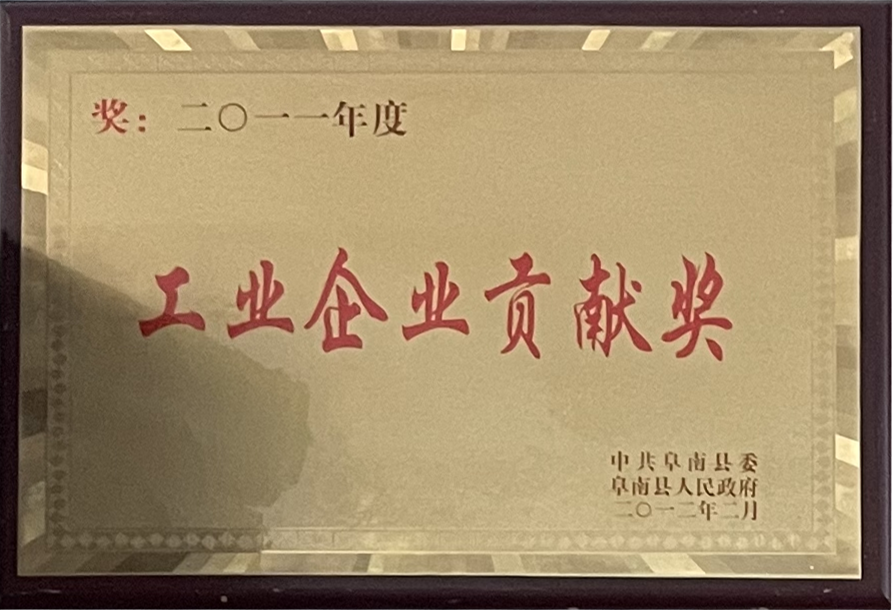 奖：二〇一一年度
工业企业贡献奖
中共阜南县委
阜南县人民政府
二〇一二年二月